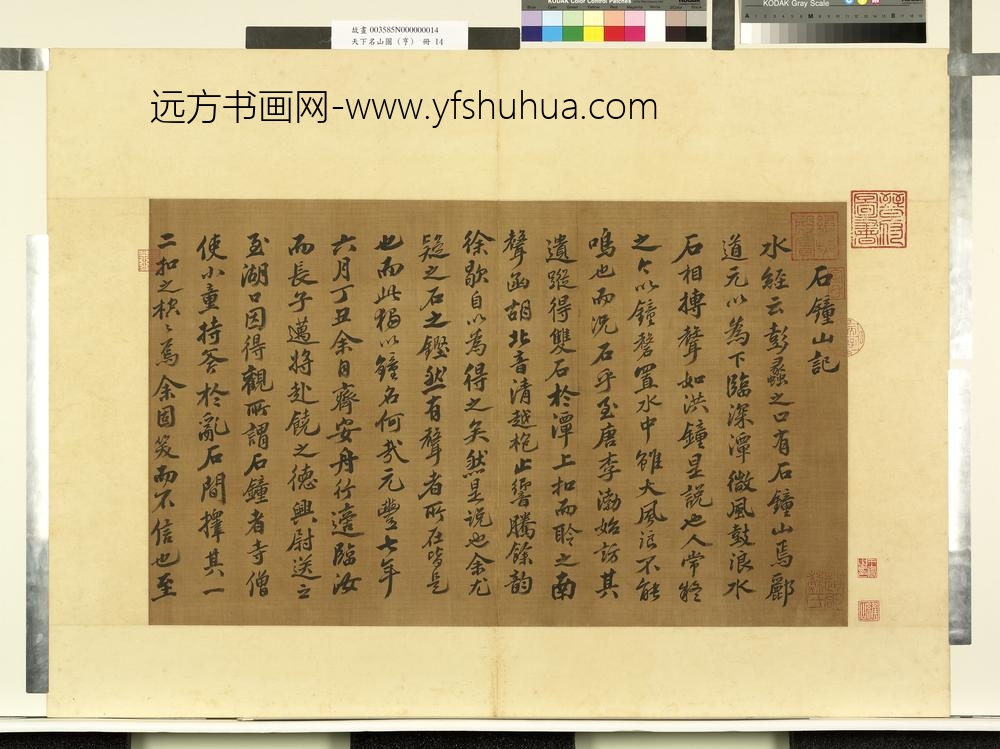 故畫 003585N000000014
天下名山圖（亨） 冊 14
KODAK Color Control Patches
KODAK Gray Scale
远方书画网-www.yfshuhua.com
石鐘山記
水經云彭蠡之口有石鐘山焉酈
道元以為下臨深潭微風鼓浪水
石相搏聲如洪鐘是說也人常疑
之今以鐘磬置水中雖大風浪不能
鳴也而況石乎至唐李渤始訪其
遺蹤得雙石於潭上扣而聆之南
聲函胡北音清越枹止響騰餘韵
徐歇自以為得之矣然是说也余尤
疑之石之鏗然有聲者所在皆是
也而此獨以鐘名何哉元豐七年
六月丁丑余自齊安舟行適臨汝
而長子邁將赴饒之德興尉送之
至湖口因得觀所謂石鐘者寺僧
使小童持斧於亂石間擇其一
二扣之硿〻焉余固笑而不信也至